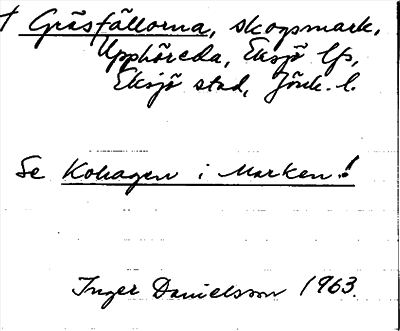 † Gräsfällorna, skogsmark,
Upphöreda, Eksjö lfs,
Eksjö stad, Jönk. l.
Se Kohagen i Marken!
Inger Danielsson 1963.